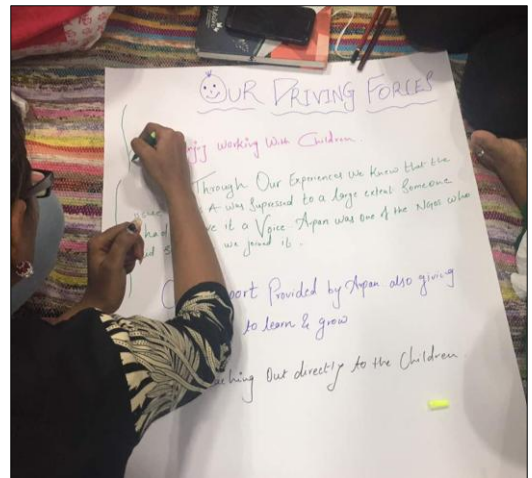 OUR DRIVING FORCES
Working With Children
Through Our Experiences We Know that the
A was supressed to a large extent Someone
had it a Voice. Arpan was one of the Ngos who
we joined it.
Provided by Arpan also giving
to learn & grow
Out directly to the Children